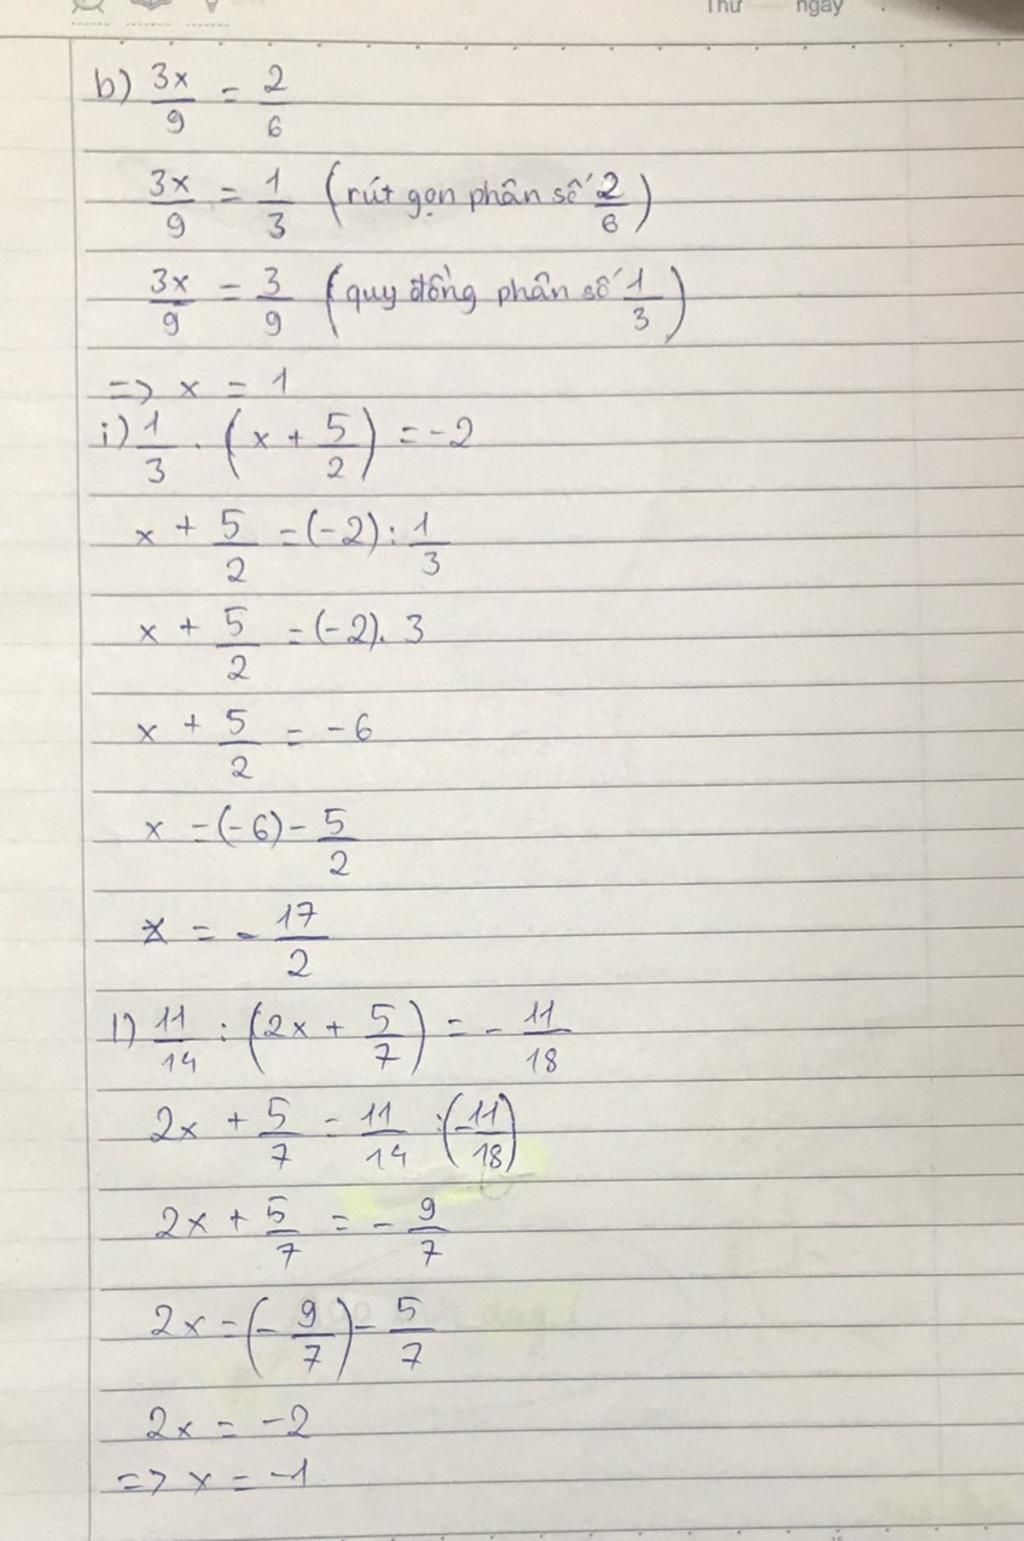 Thứ ngày
b) 3x/9 = 2/6
3x/9 = 1/3 (rút gọn phân số 2/6)
3x/9 = 3/9 (quy đồng phân số 1/3)
=> x = 1
i) 1/3 . (x + 5/2) = -2
x + 5/2 = (-2) : 1/3
x + 5/2 = (-2). 3
x + 5/2 = -6
x = (-6) - 5/2
x = - 17/2
l) 11/14 : (2x + 5/7) = - 11/18
2x + 5/7 = 11/14 : (-11/18)
2x + 5/7 = - 9/7
2x = (- 9/7) - 5/7
2x = -2
=> x = -1